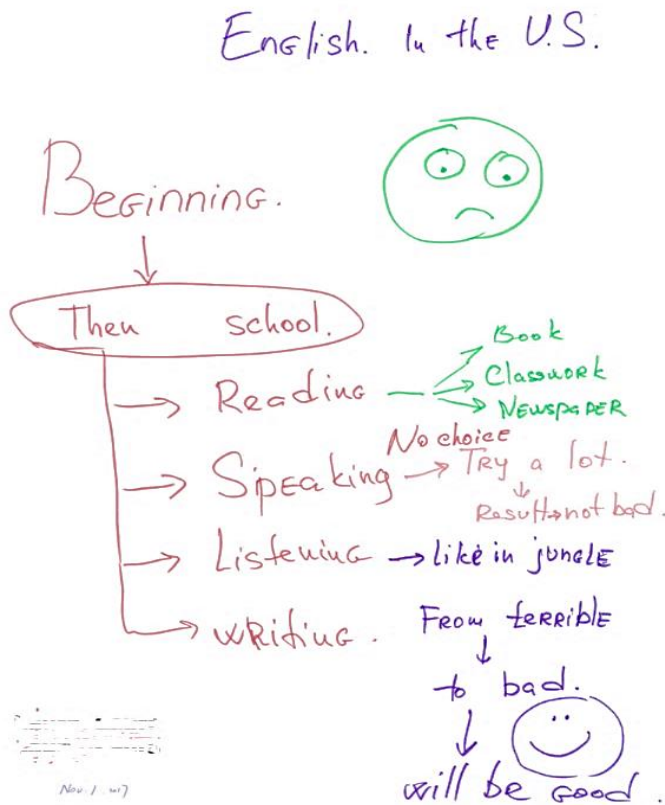 English. In the U.S.
Beginning.
Then school.
Reading
Book
Classwork
Newspaper
Speaking
No choice
Try a lot.
Result→not bad.
Listening → like in jungle
writing.
From terrible
to bad.
will be good.
Nov. 1